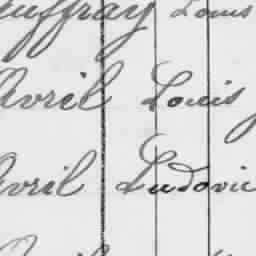 uffray Louis
Avril Louis
Avril Ludovic